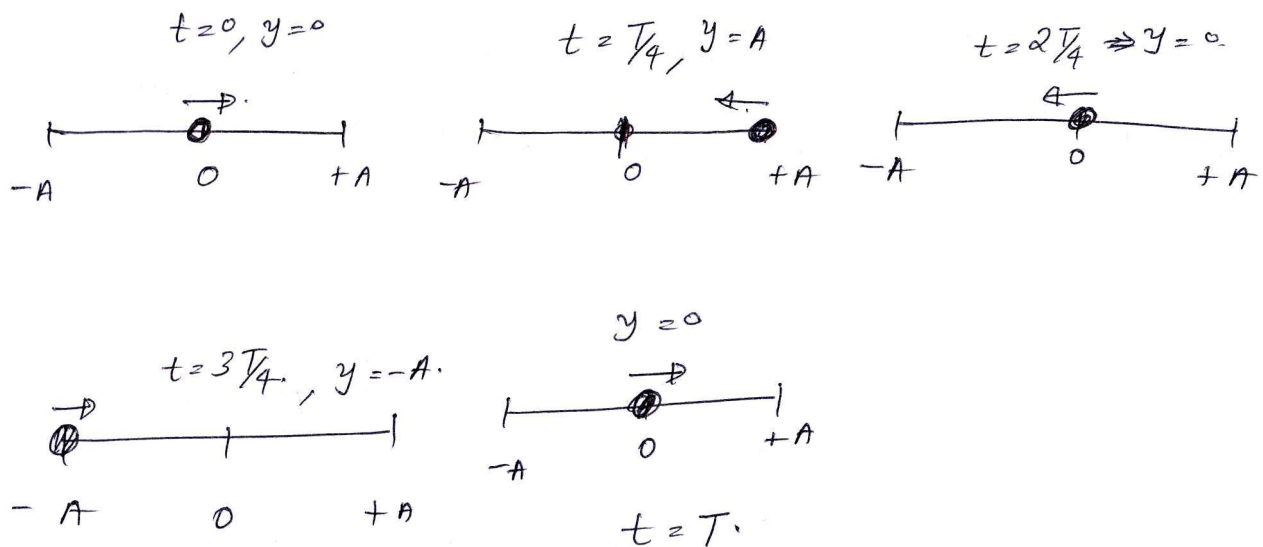 t=0, y=0
-A 0 +A
t = T/4, y=A
-A 0 +A
t=2T/4 ⇒ y=0.
-A 0 +A
t=3T/4., y=-A.
-A 0 +A
y=0
-A 0 +A
t=T.